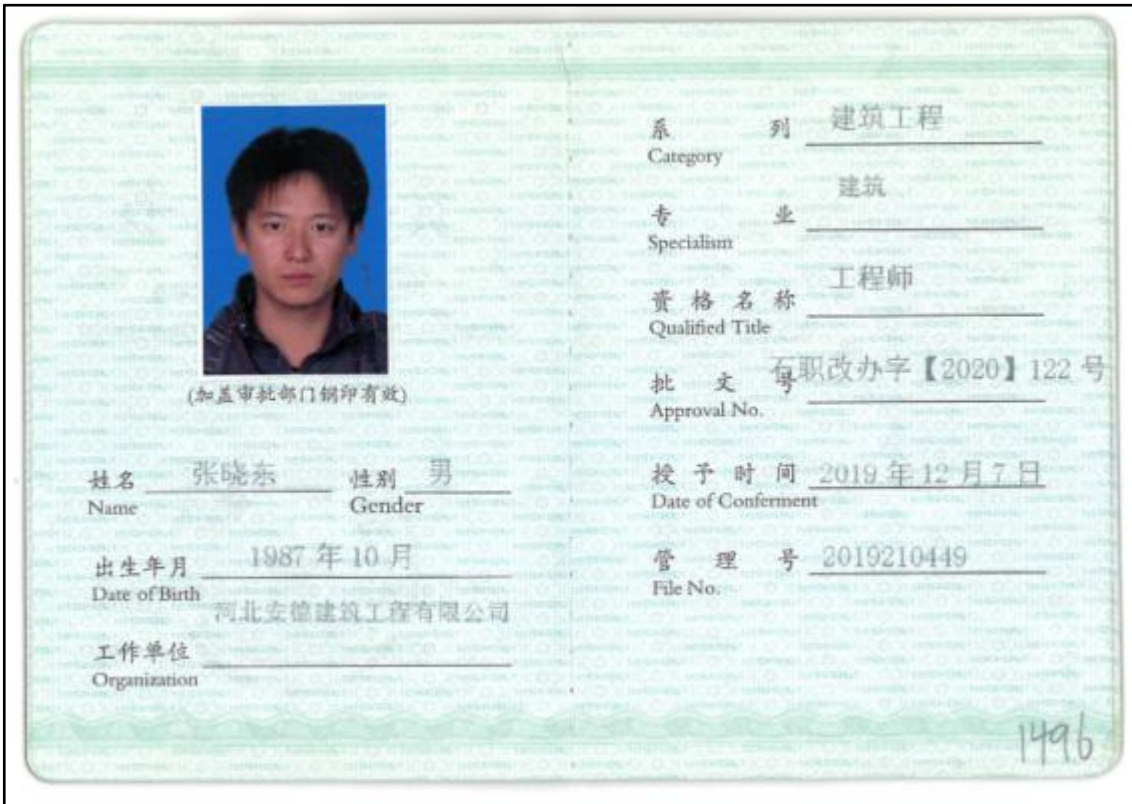 (加盖审批部门钢印有效)
姓名 张晓东 性别 男
Name Gender
出生年月 1987 年 10 月
Date of Birth
河北安德建筑工程有限公司
工作单位
Organization
系列 建筑工程
Category
专业 建筑
Specialism
资格名称 工程师
Qualified Title
批文号 石职改办字【2020】122 号
Approval No.
授予时间 2019 年 12 月 7 日
Date of Conferment
管理号 2019210449
File No.
1496